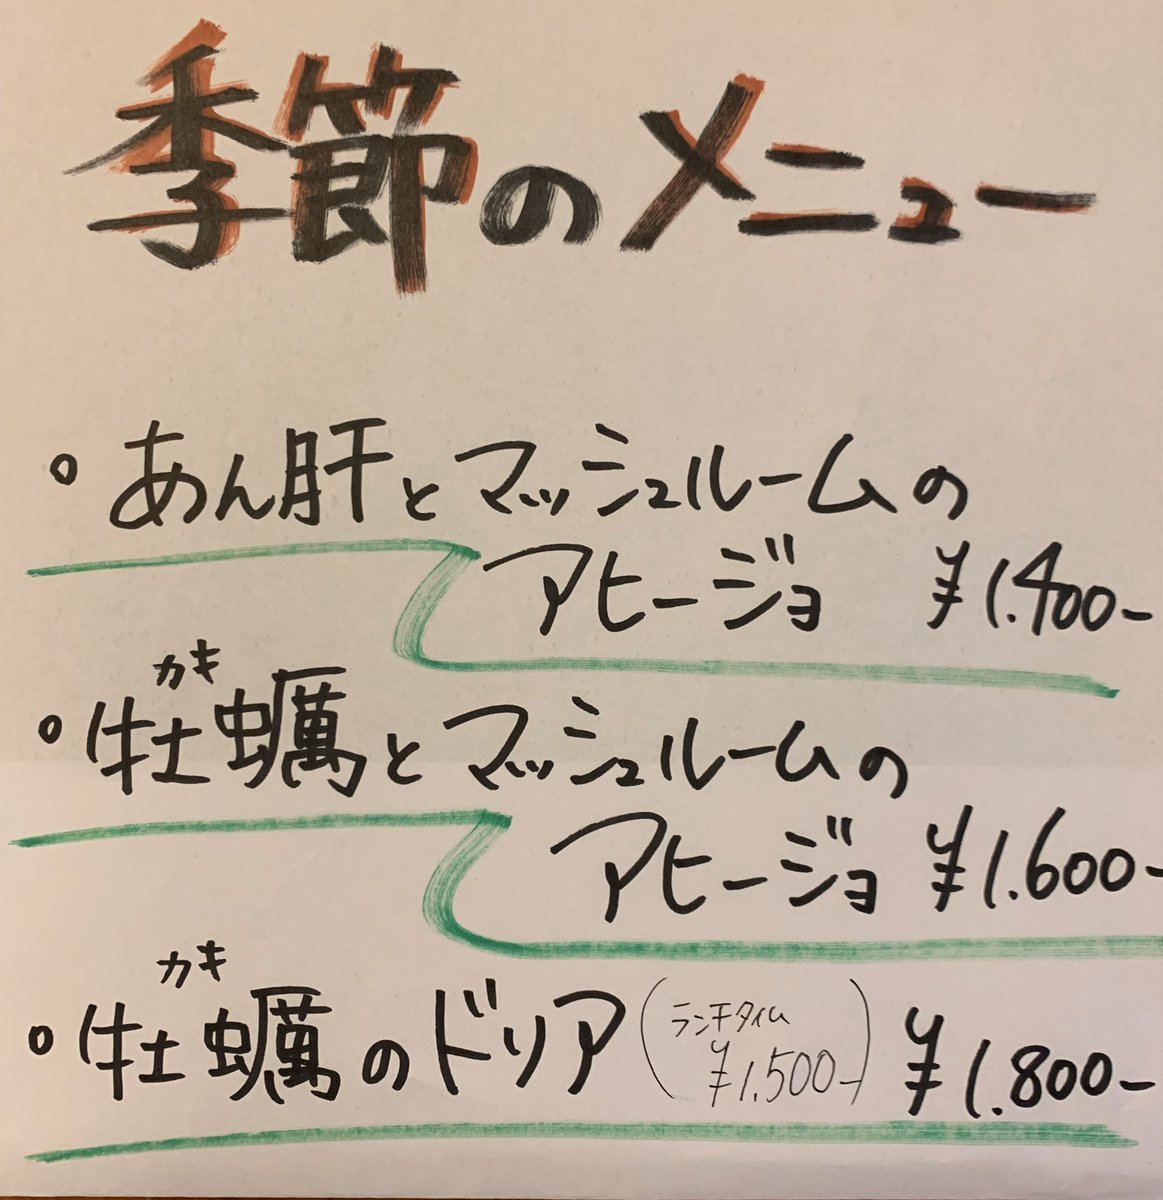 季節のメニュー
。あん肝とマッシュルームの
アヒージョ ¥1.400-
カキ
。牡蠣とマッシュルームの
アヒージョ ¥1.600-
カキ
。牡蠣のドリア(ランチタイム ¥1.500-) ¥1.800-